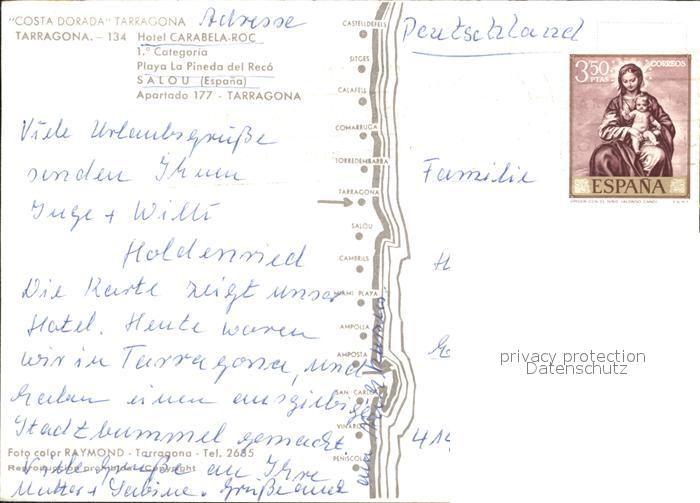 "COSTA DORADA" TARRAGONA Adresse
TARRAGONA. – 134 Hotel CARABELA-ROC
1.ª Categoría
Playa La Pineda del Recó
SALOU (España)
Apartado 177 - TARRAGONA
Viele Urlaubsgrüße
senden Ihnen
Inge + Willi
Holdenried
Die Karte zeigt unser
Hotel. Heute waren
wir in Tarragona, und
haben einen ausgiebigen
Stadtbummel gemacht
Foto color RAYMOND - Tarragona - Tel. 2685
Reproduccion prohibida - Copyright
Viele Grüße an Ihre
Mutter + Sabine. Grüße auch
CASTELLDEFELS
SITGES
CALAFELL
COMARRUGA
TORREDEMBARRA
TARRAGONA
SALOU
CAMBRILS
MIAMI PLAYA
AMPOLLA
AMPOSTA
SAN CARLOS
VINAROZ
PEÑISCOLA
Deutschland
3,50 PTAS CORREOS
ESPAÑA
VIRGEN CON EL NIÑO (ALONSO CANO) F.N.M.T.
Familie
privacy protection
Datenschutz